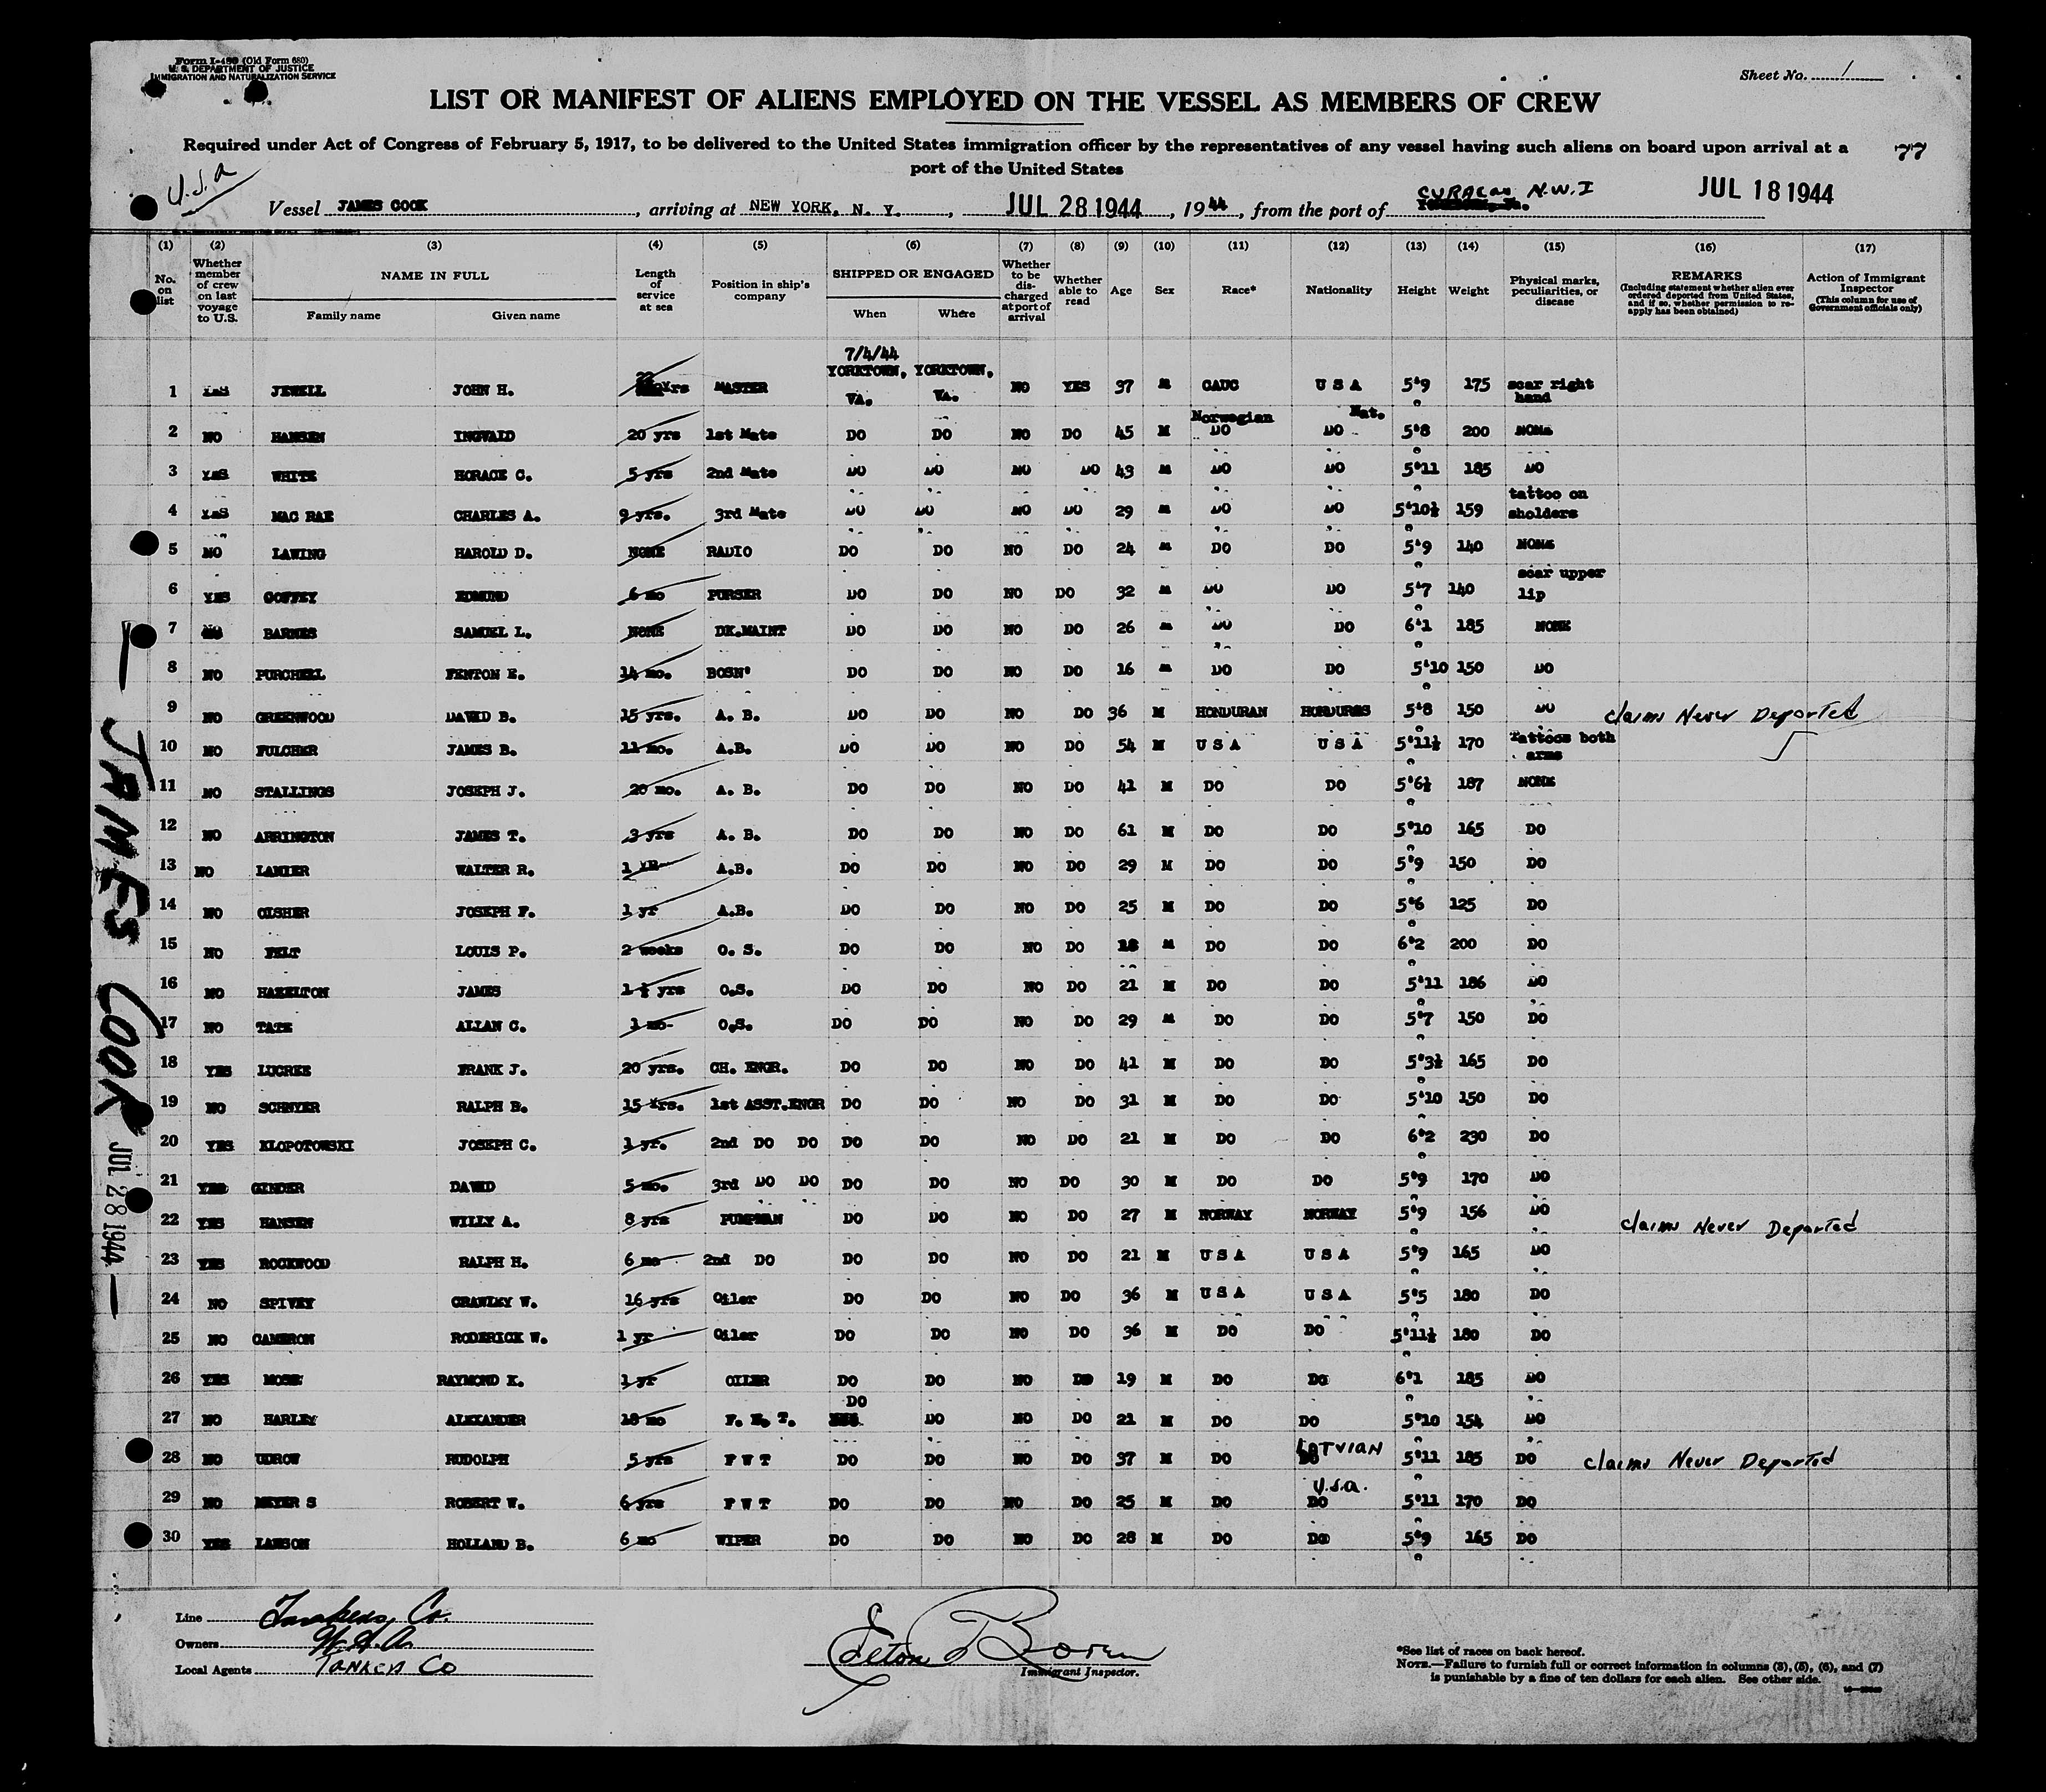 Form I-480 (Old Form 680)
U. S. DEPARTMENT OF JUSTICE
IMMIGRATION AND NATURALIZATION SERVICE
Sheet No. 1
LIST OR MANIFEST OF ALIENS EMPLOYED ON THE VESSEL AS MEMBERS OF CREW
Required under Act of Congress of February 5, 1917, to be delivered to the United States immigration officer by the representatives of any vessel having such aliens on board upon arrival at a
port of the United States
77
U.S.A
CURACAO N.W.I
JUL 18 1944
Vessel JAMES COOK, arriving at NEW YORK, N. Y., JUL 28 1944, 1944, from the port of
(1) (2) (3) (4) (5) (6) (7) (8) (9) (10) (11) (12) (13) (14) (15) (16) (17)
No. on list
Whether member of crew on last voyage to U.S.
NAME IN FULL
Family name
Given name
Length of service at sea
Position in ship's company
SHIPPED OR ENGAGED
When
Where
Whether to be discharged at port of arrival
Whether able to read
Age
Sex
Race*
Nationality
Height
Weight
Physical marks, peculiarities, or disease
REMARKS
(Including statement whether alien ever ordered deported from United States, and if so, whether permission to reapply has been obtained)
Action of Immigrant Inspector
(This column for use of Government officials only)
7/4/44
YORKTOWN, YORKTOWN,
1 YES JEWELL JOHN H. 22 Yrs MASTER VA. VA. NO YES 37 M CAUC U S A 5'9 175 scar right hand
Norwegian Nat.
2 NO HANSEN INGVALD 20 yrs 1st Mate DO DO NO DO 45 M DO DO 5'8 200 NONE
3 YES WHITE HORACE C. 5 yrs 2nd Mate DO DO NO DO 43 M DO DO 5'11 185 DO
4 YES MAC RAE CHARLES A. 9 yrs. 3rd Mate DO DO NO DO 29 M DO DO 5'10½ 159 tattoo on sholders
5 NO LAWING HAROLD D. NONE RADIO DO DO NO DO 24 M DO DO 5'9 140 NONE
6 YES COFFEY EDMUND 6 mo PURSER DO DO NO DO 32 M DO DO 5'7 140 scar upper lip
7 NO BARNES SAMUEL L. NONE DK.MAINT DO DO NO DO 26 M DO DO 6'1 185 NONE
8 NO PURCHELL FENTON E. 14 mo. BOSN' DO DO NO DO 16 M DO DO 5'10 150 DO
9 NO GREENWOOD DAVID B. 15 yrs. A. B. DO DO NO DO 36 M HONDURAN HONDURAS 5'8 150 DO claims Never Deported
10 NO FULCHER JAMES B. 11 mo. A.B. DO DO NO DO 54 M U S A U S A 5'11½ 170 Tattoos both arms
11 NO STALLINGS JOSEPH J. 20 mo. A. B. DO DO NO DO 41 M DO DO 5'6½ 187 NONE
12 NO ARRINGTON JAMES T. 3 yrs A. B. DO DO NO DO 61 M DO DO 5'10 165 DO
13 NO LANIER WALTER R. 1 YR A.B. DO DO NO DO 29 M DO DO 5'9 150 DO
14 NO CISHER JOSEPH F. 1 yr A.B. DO DO NO DO 25 M DO DO 5'6 125 DO
15 NO FELT LOUIS P. 2 weeks O. S. DO DO NO DO 18 M DO DO 6'2 200 DO
16 NO HAZELTON JAMES 1 ½ yrs O.S. DO DO NO DO 21 M DO DO 5'11 186 DO
17 NO TATE ALLAN C. 1 mo- O.S. DO DO NO DO 29 M DO DO 5'7 150 DO
18 YES LUCREE FRANK J. 20 yrs. CH. ENGR. DO DO NO DO 41 M DO DO 5'3½ 165 DO
19 NO SCHNYER RALPH B. 15 Yrs. 1st ASST.ENGR DO DO NO DO 31 M DO DO 5'10 150 DO
20 YES KLOPOTOWSKI JOSEPH C. 1 yr. 2nd DO DO DO DO NO DO 21 M DO DO 6'2 230 DO
21 YES GINDER DAVID 5 mo. 3rd DO DO DO DO NO DO 30 M DO DO 5'9 170 DO
22 YES HANSEN WILLY A. 8 yrs PUMPMAN DO DO NO DO 27 M NORWAY NORWAY 5'9 156 DO claims Never Deported
23 YES ROCKWOOD RALPH H. 6 mo 2nd DO DO DO NO DO 21 M U S A U S A 5'9 165 DO
24 NO SPIVEY CRAWLEY W. 16 yrs Oiler DO DO NO DO 36 M U S A U S A 5'5 180 DO
25 NO CAMERON RODERICK W. 1 yr Oiler DO DO NO DO 36 M DO DO 5'11½ 180 DO
26 YES MOSE RAYMOND K. 1 yr OILER DO DO NO DO 19 M DO DO 6'1 185 DO
27 NO HARLEY ALEXANDER 18 mo F. W. T. DO DO NO DO 21 M DO DO 5'10 154 DO
28 NO UDROW RUDOLPH 5 yrs F W T DO DO NO DO 37 M DO LATVIAN 5'11 185 DO claims Never Deported
29 NO MEYER S ROBERT W. 6 yrs F W T DO DO NO DO 25 M DO U.S.A. DO 5'11 170 DO
30 YES LAWSON HOLLAND B. 6 mo WIPER DO DO NO DO 28 M DO DO 5'9 165 DO
JAMES COOK JUL 28 1944
Line Tankers Co.
Owners W.S.A.
Local Agents Tankers Co
Elton Boren
Immigrant Inspector.
*See list of races on back hereof.
NOTE.—Failure to furnish full or correct information in columns (3), (5), (6), and (7)
is punishable by a fine of ten dollars for each alien. See other side.